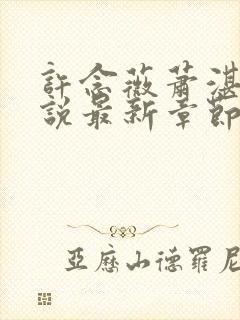 許念薇蕭湛
說最新章節
亞歷山德羅尼